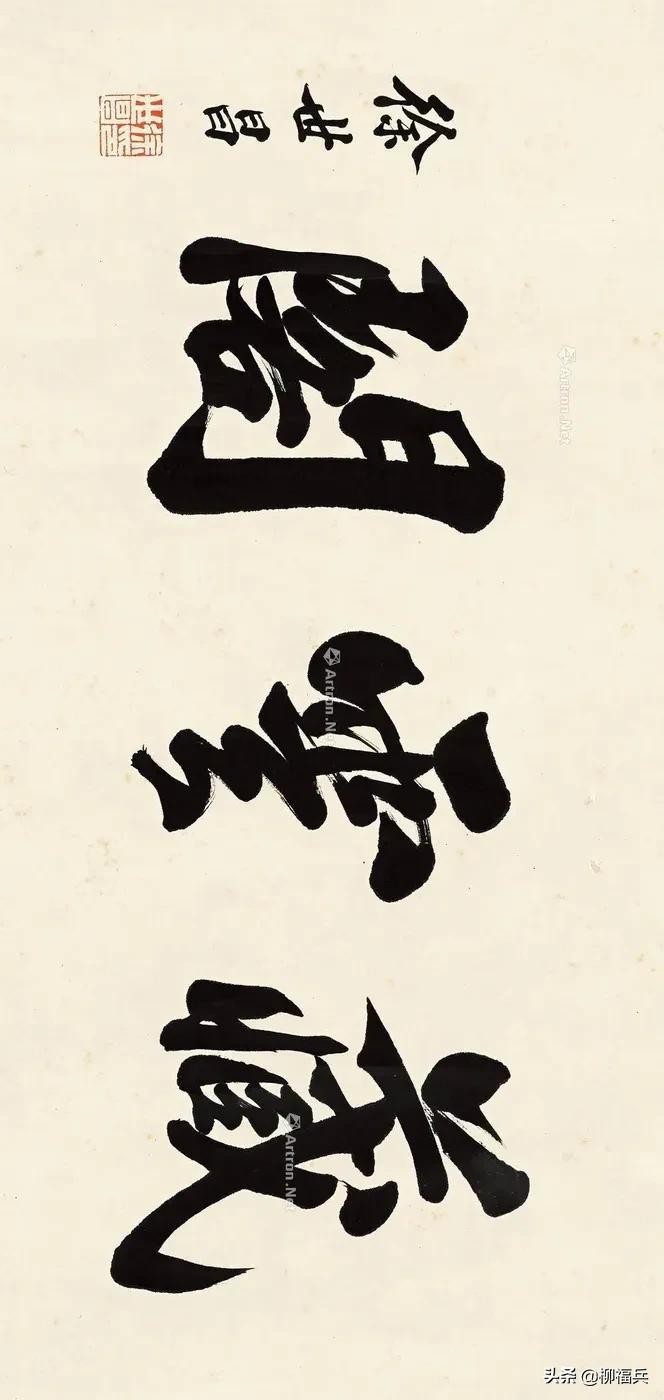 藏雲閣
徐世昌
Artron.Net
Artron.Net
Artron.Net
头条 @柳福兵